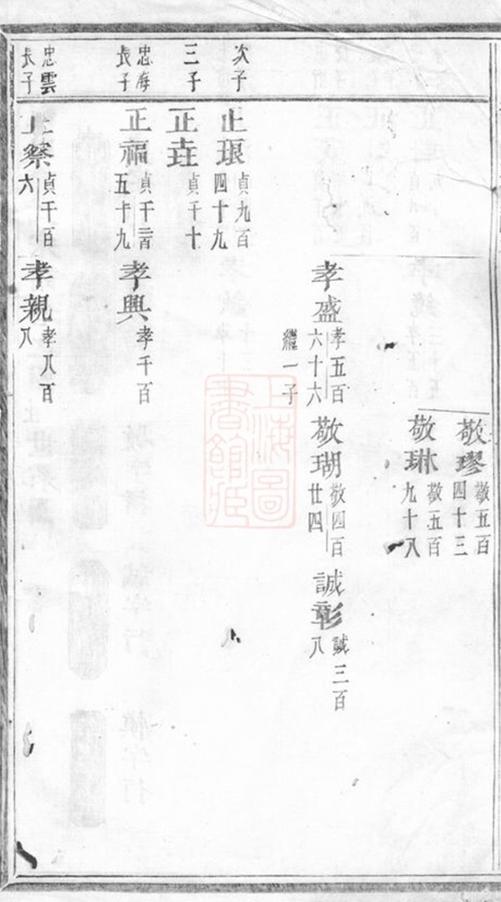 敬璆 敬五百四十三
敬琳 敬五百九十八
孝盛 孝五百六十六 繼一子
敬瑚 敬四百廿四
誠彰 誠三百八
次子
正珢 貞九百四十九
三子
正垚 貞千十
忠海長子
正福 貞千一百五十九
孝興 孝千百
忠雲長子
正祭 貞千百六
孝親 孝八百八
上海圖書館藏